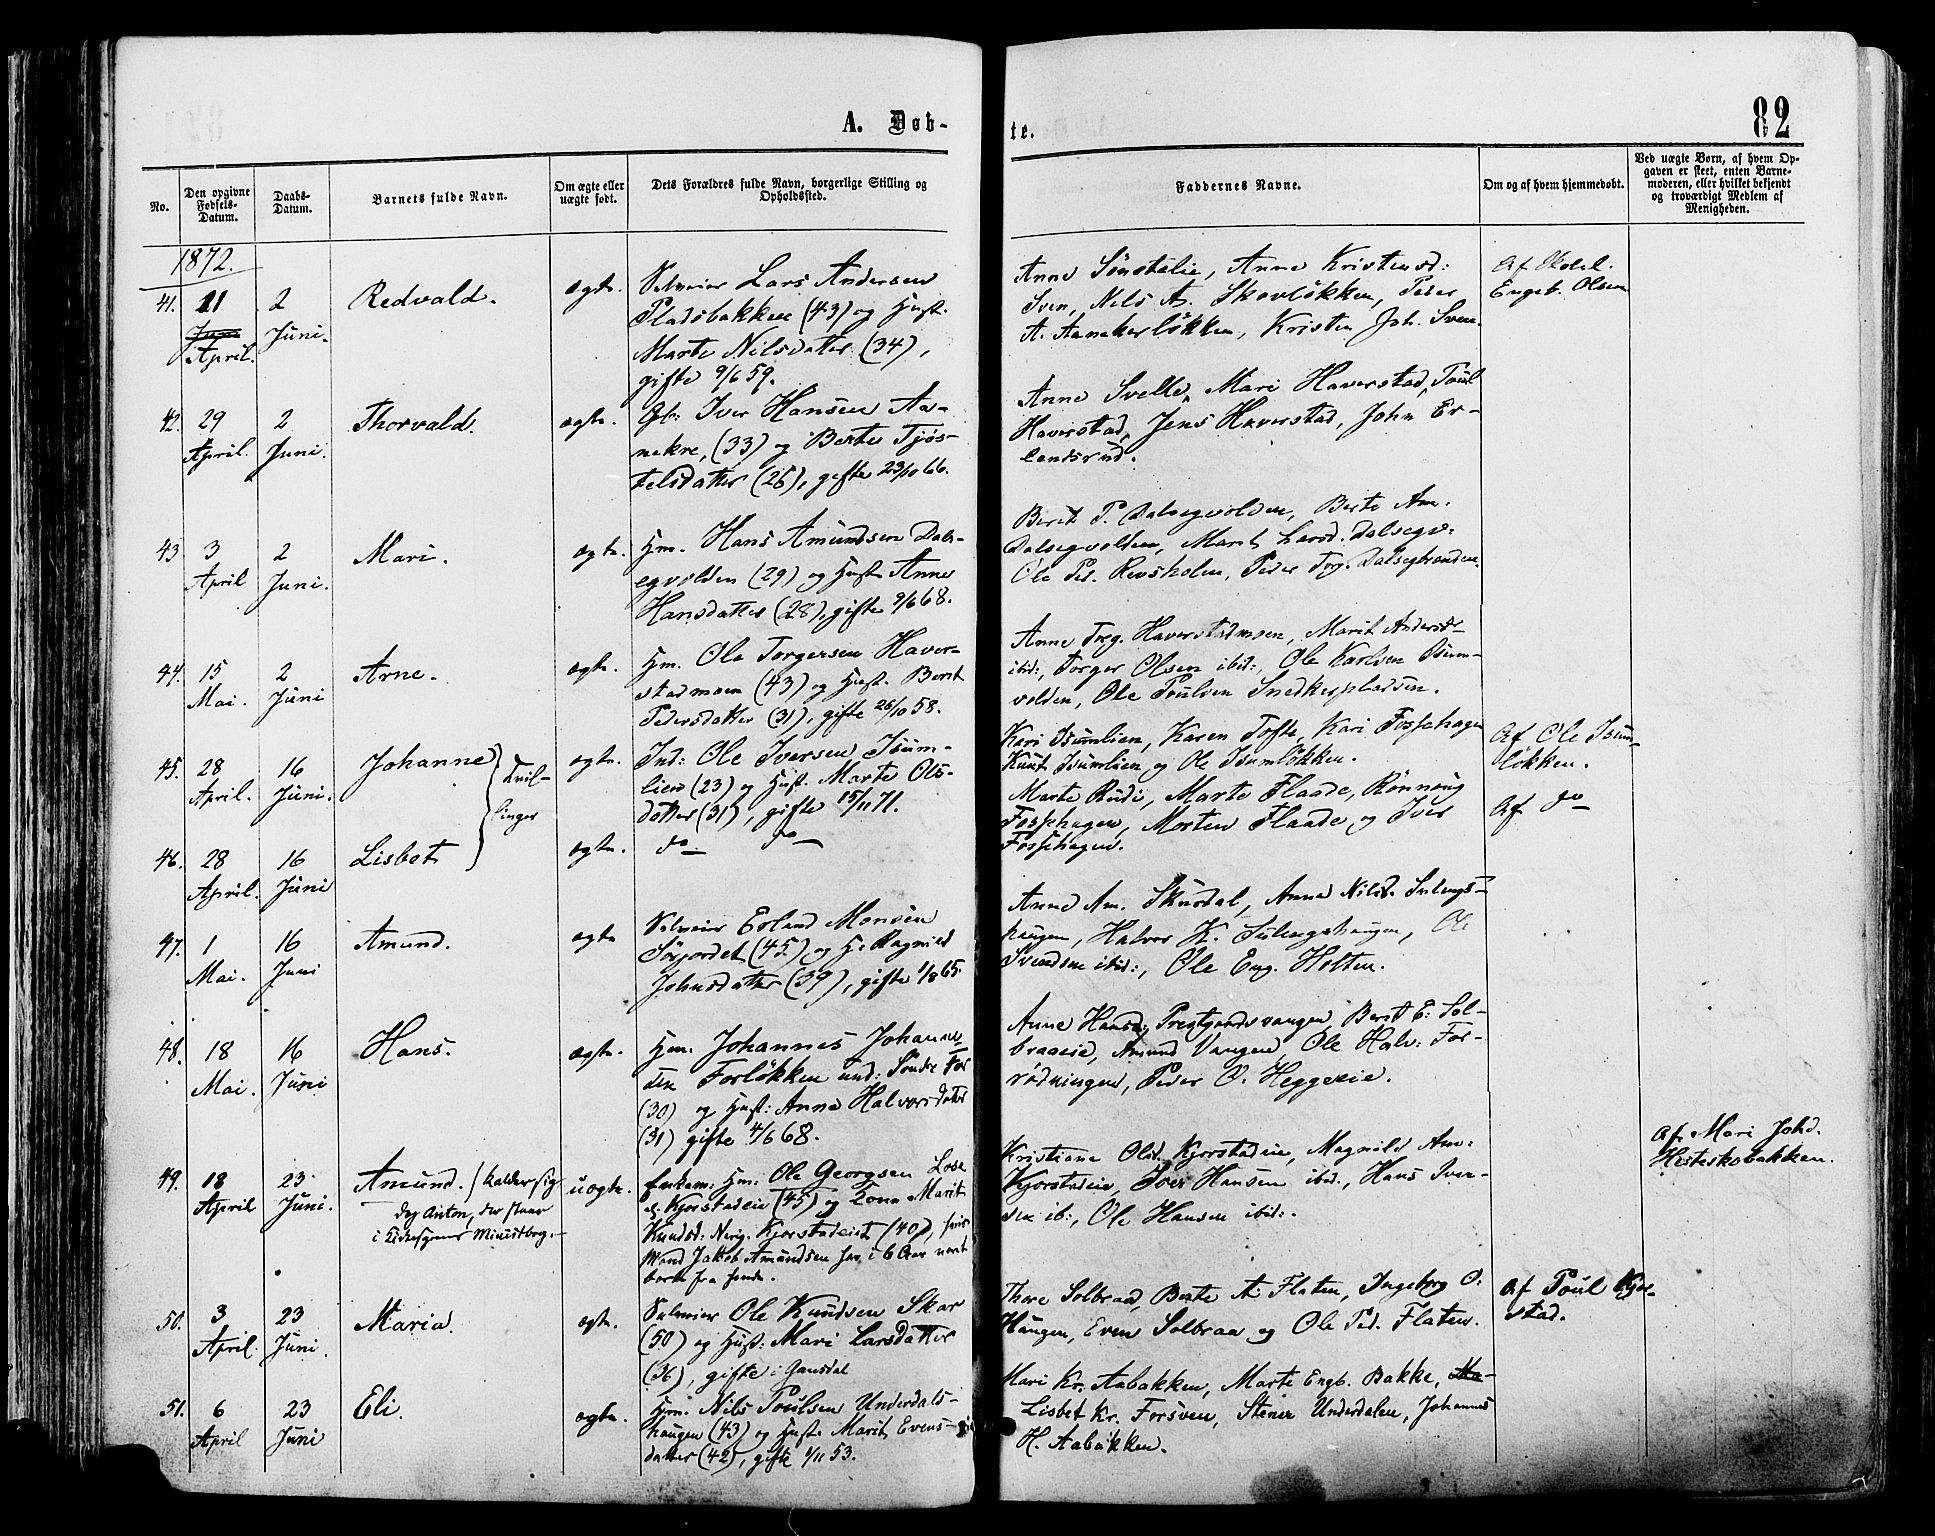 A. Døb-
te.
82
No.
Den opgivne Fødsels-Datum.
Daabs-Datum.
Barnets fulde Navn.
Om ægte eller uægte født.
Dets Forældres fulde Navn, borgerlige Stilling og Opholdssted.
Faddernes Navne.
Om og af hvem hjemmedøbt.
Ved uægte Børn, af hvem Op-
gaven er skeet, enten Barne-
moderen, eller hvilket bekjendt
og troværdigt Medlem af
Menigheden.
1872.
41. 11 Juni April. 2 Juni. Redvald. ægte.
Selveier Lars Andersen
Pladsbakken (43) og Hust.
Marte Nilsdatter (34),
gifte 9/6 59.
Anne Sønstelie, Anne Kristensd:
Sven, Nils A. Skovløkken, Peder
A. Aanekerløkken, Kristen Joh. Sven.
Engeb. Olsen
42. 29 April. 2 Juni. Thorvald. ægte.
Gbr. Iver Hansen Aa-
nekre, (33) og Berte Tjøs-
telsdatter (26), gifte 23/10 66.
Anne Svelle, Mari Haverstad, Poul
Haverstad, Jens Haverstad, John Er-
landsrud.
43 3 April 2 Juni. Mari. ægte.
Hm. Hans Amundsen Dals-
egvolden (29) og Hust. Anne
Hansdatter (28), gifte 9/6 68.
Berit P. Dalsegvolden, Berte Am.
Dalsegvolden, Marit Larsd. Dalsegv:
Ole Ped. Revsholen, Peder Torg. Dalsegbranden.
44. 15 Mai. 2 Juni Arne. ægte.
Hm. Ole Torgersen Haver-
stadmoen (43) og Hust. Berit
Pedersdatter (31), gifte 26/10 58.
Anne Torg. Haverstadmoen, Marit Andersdr
ibid:, Torger Olsen ibid:, Ole Karlsen Isum-
volden, Ole Poulsen Snedkerpladsen.
45. 28 April. 16 Juni. Johanne ægte.
Tvil-
linger
Ind: Ole Iversen Isum-
lien (23) og Hust. Marte Ols-
datter (31), gifte 15/11 71.
Kari Isumlien, Karen Tofte, Kari Fossehagen
Knut Isumlien og Ole Isumløkken.
Af Ole Isum-
løkken.
46. 28 April. 16 Juni Lisbet ægte. do do
Marte Rudi, Marte Flaade, Rønnaug
Fossehagen, Morten Flaade og Iver
Fossehagen.
Af do
47. 1 Mai. 16 Juni Amund. ægte
Selveier Erland Monsen
Sørjordet (45) og H. Ragnild
Johnsdatter (39), gifte 1/8 65.
Anne Am. Skurdal, Anne Nilsd. Sulengs-
haugen, Halvor K. Sulengshaugen, Ole
Svendsen ibid:, Ole Eng. Holten.
48. 18 Mai. 16 Juni Hans. ægte.
Hm. Johannes Johannes-
sen Forløkken und: Søndre For
(30) og Hust: Anne Halvorsdatter
(31) gifte 4/6 68.
Anne Hansd: Prestgaardsvangen, Berit E: Sol-
braaeie, Amund Vangen, Ole Halv: For-
rødningen, Peder O. Heggeeie.
49. 18 April 23 Juni. Amund. (kalder sig
dog Anton, der staar
i Kirkesgrens Ministbog.
uægte.
Enkem: Hm: Ole Georgsen Lose
Kjorstadeie (45) og Kone Marit
Knudsd: Kjorstadeiet (40), hvis
Mand Jakob Amundsen har i 6 Aar været
borte fra hende.
Kristiane Olsd. Kjorstadeie, Magnild Am:
Kjorstadeie, Iver Hansen ibid:, Hans Iver-
sen ib:, Ole Hansen ibid:.
Af Mari Johd.
Hesteskobakken.
50. 3 April. 23 Juni. Maria. ægte.
Selveier Ole Knudsen Skar
(50) og Hust: Mari Larsdatter
(36), gifte i Gausdal
Thore Solbraa, Berte A. Flaten, Ingeborg O:
Haugen, Even Solbraa og Ole Ped. Flaten.
Af Poul Kjor-
stad.
51. 6 April 23 Juni Eli. ægte.
Hm. Nils Poulsen Underdals-
haugen (43) og Hust. Marit Evens-
datter (42), gifte 1/11 53.
Mari Kr. Aabakken, Marte Engb. Bakke, Ma-
Lisbet Kr. Forsven, Stener Underdalen, Johannes
H. Aabakken.